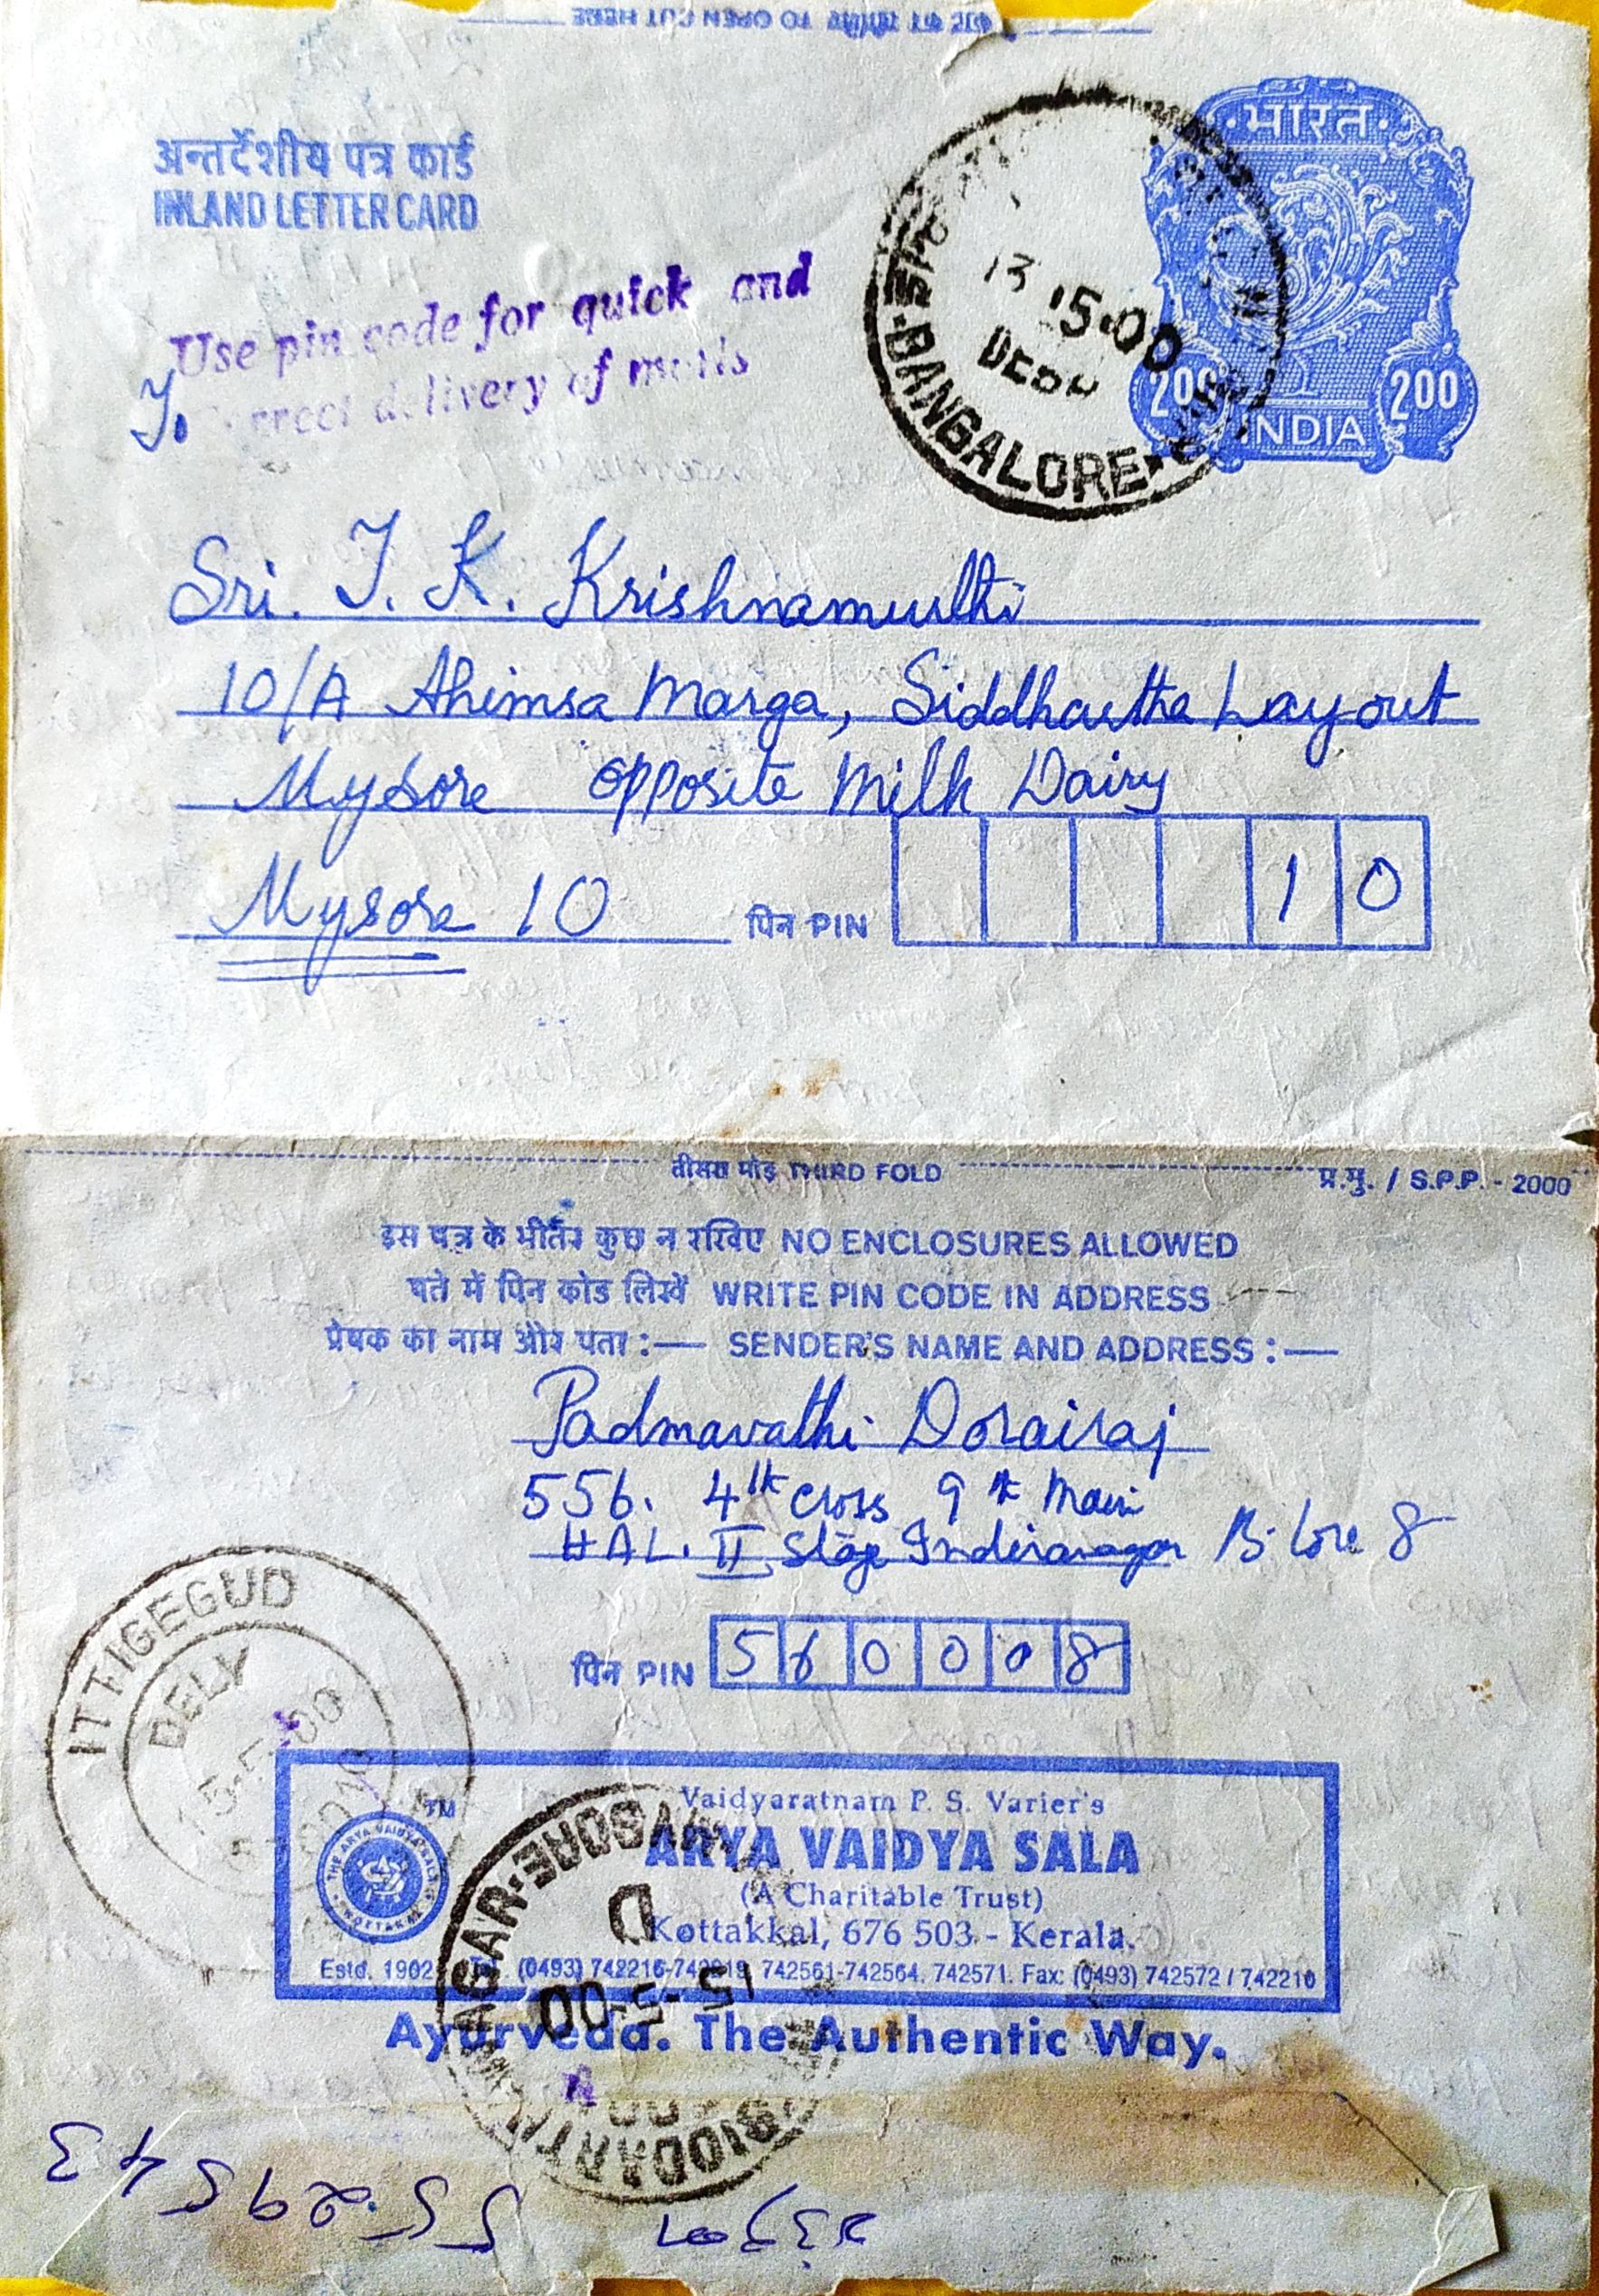 काट कर खोलिए TO OPEN CUT HERE
अन्तर्देशीय पत्र कार्ड
INLAND LETTER CARD
भारत
200 200
INDIA
Use pin code for quick and
correct delivery of mails
15·00
BANGALORE
To
Sri. T. K. Krishnamurthi
10/A Ahimsa Marga, Siddhartha Layout
Mysore opposite Milk Dairy
Mysore 10 पिन PIN 10
तीसरा मोड़ THIRD FOLD प्र.मु. / S.P.P. - 2000
इस पत्र के भीतर कुछ न रखिए NO ENCLOSURES ALLOWED
पते में पिन कोड लिखें WRITE PIN CODE IN ADDRESS
प्रेषक का नाम और पता :— SENDER'S NAME AND ADDRESS :—
Padmavathi Dorairaj
556. 4th cross 9th Main
HAL. II Stage Indiranagar B.lore 8
पिन PIN 560008
ITTIGEGUD
DELY
TM
THE ARYA VAIDYA SALA
KOTTAKAL
Vaidyaratnam P. S. Varier's
ARYA VAIDYA SALA
(A Charitable Trust)
Kottakkal, 676 503 - Kerala.
Estd. 1902 Tel. (0493) 742216-742219, 742561-742564, 742571. Fax: (0493) 742572 / 742210
Ayurveda. The Authentic Way.
MYSORE
D
15-5-00